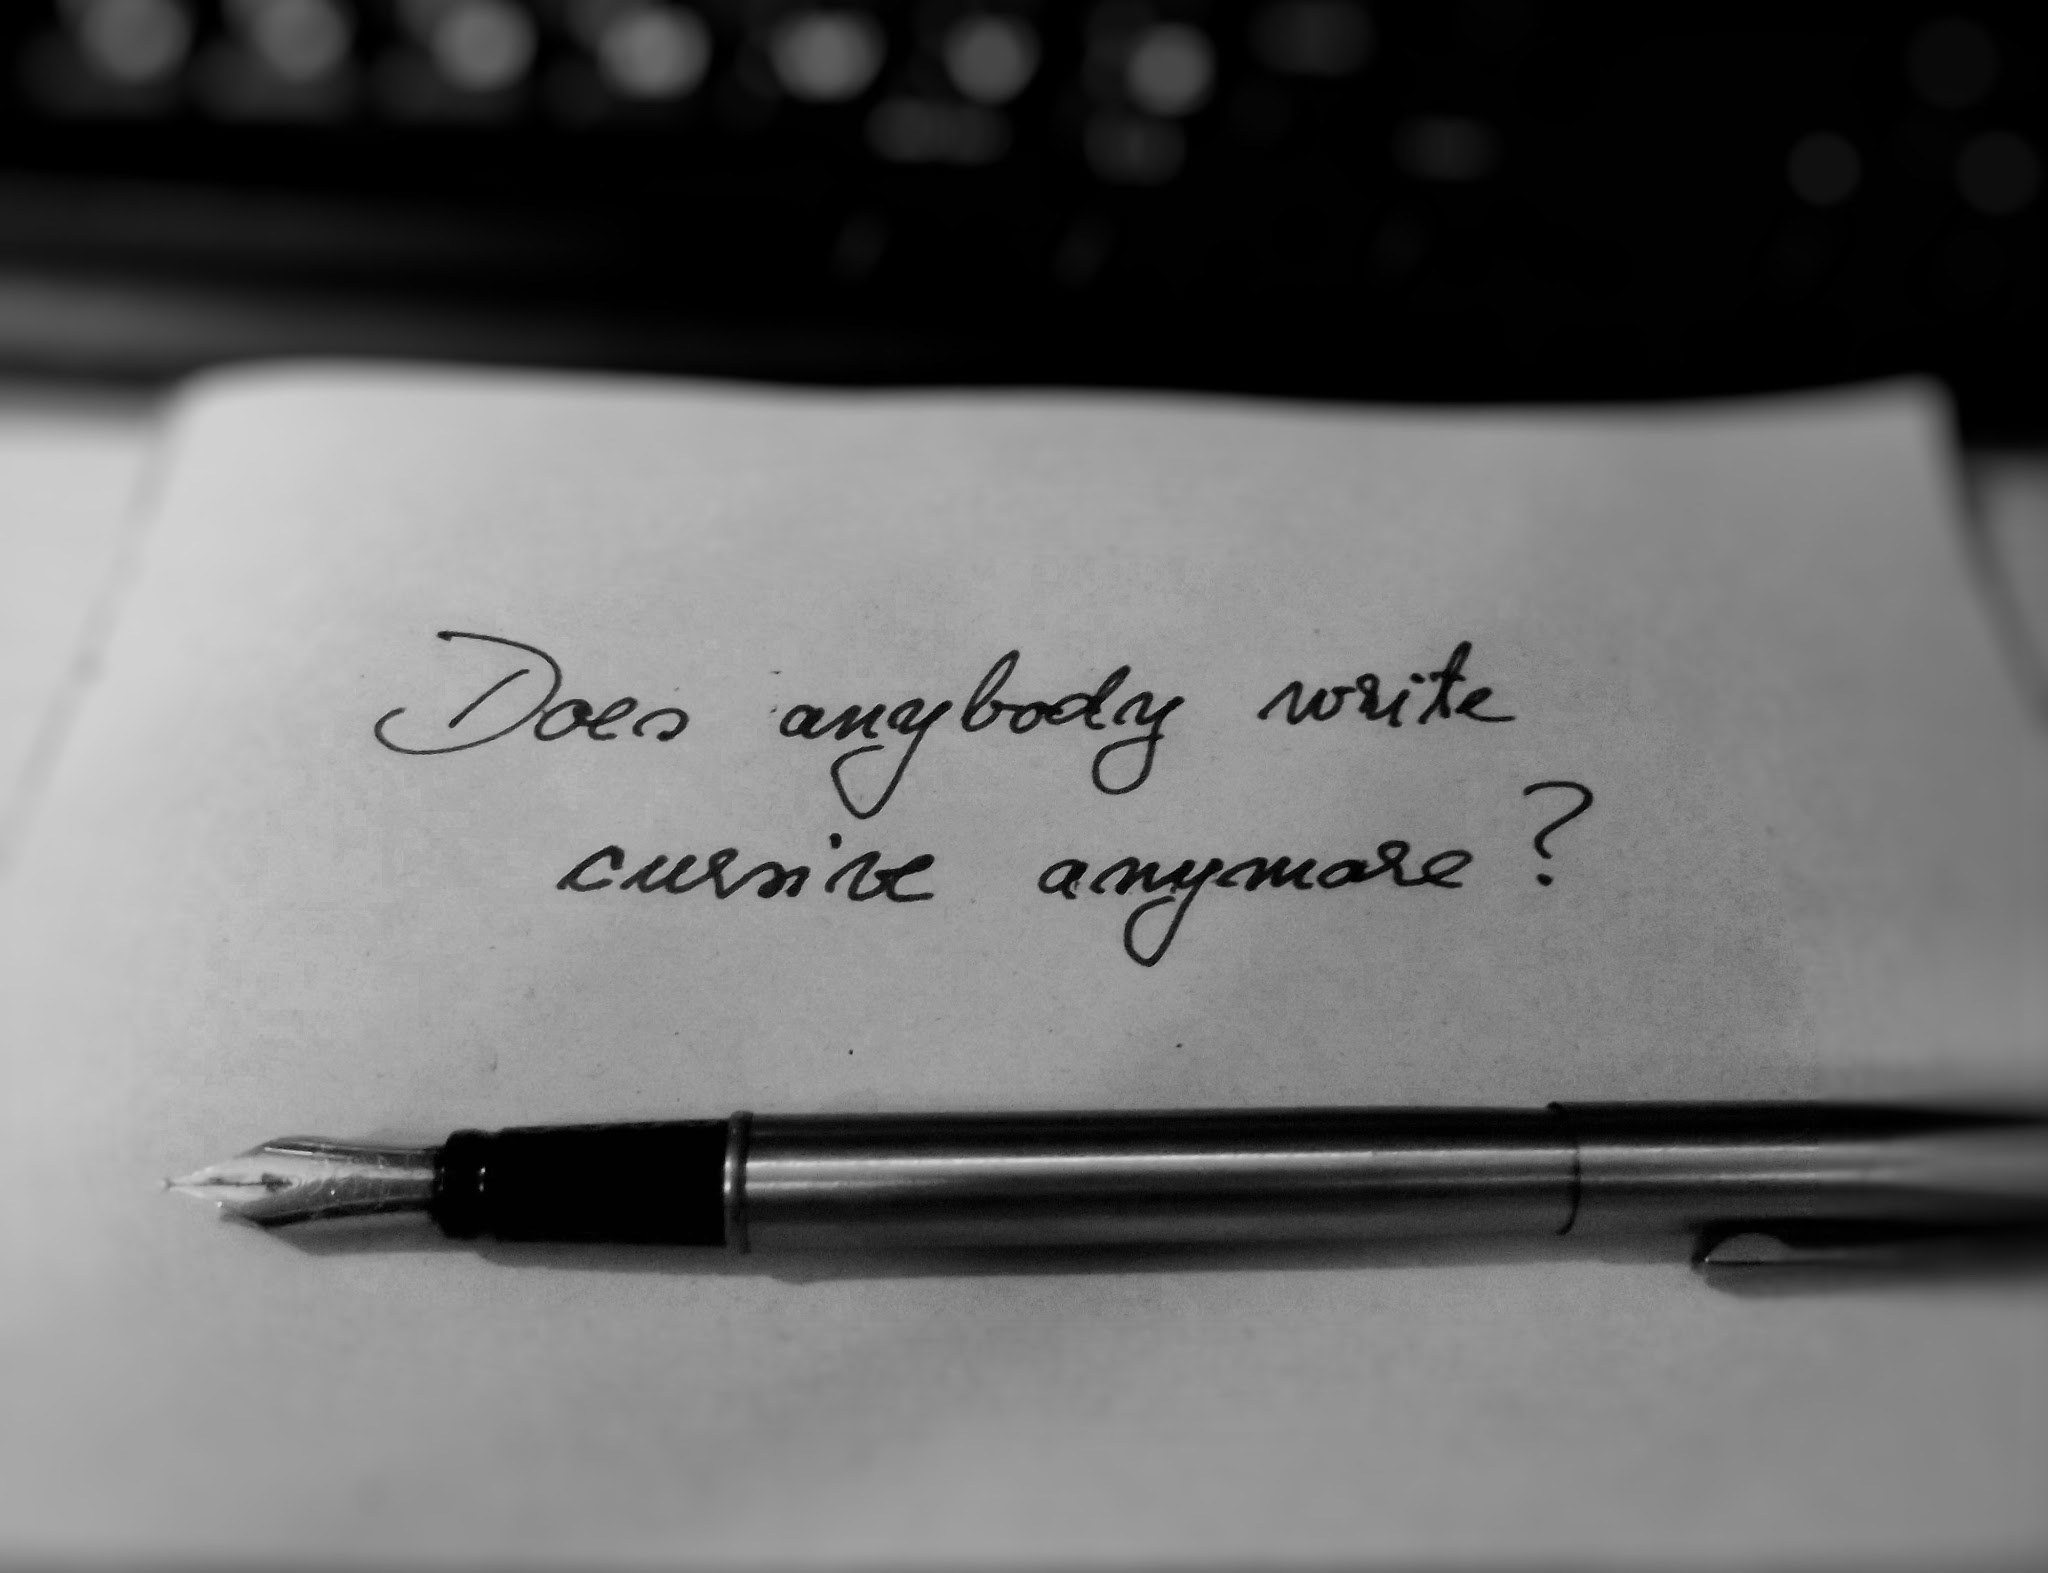 Does anybody write
cursive anymore?